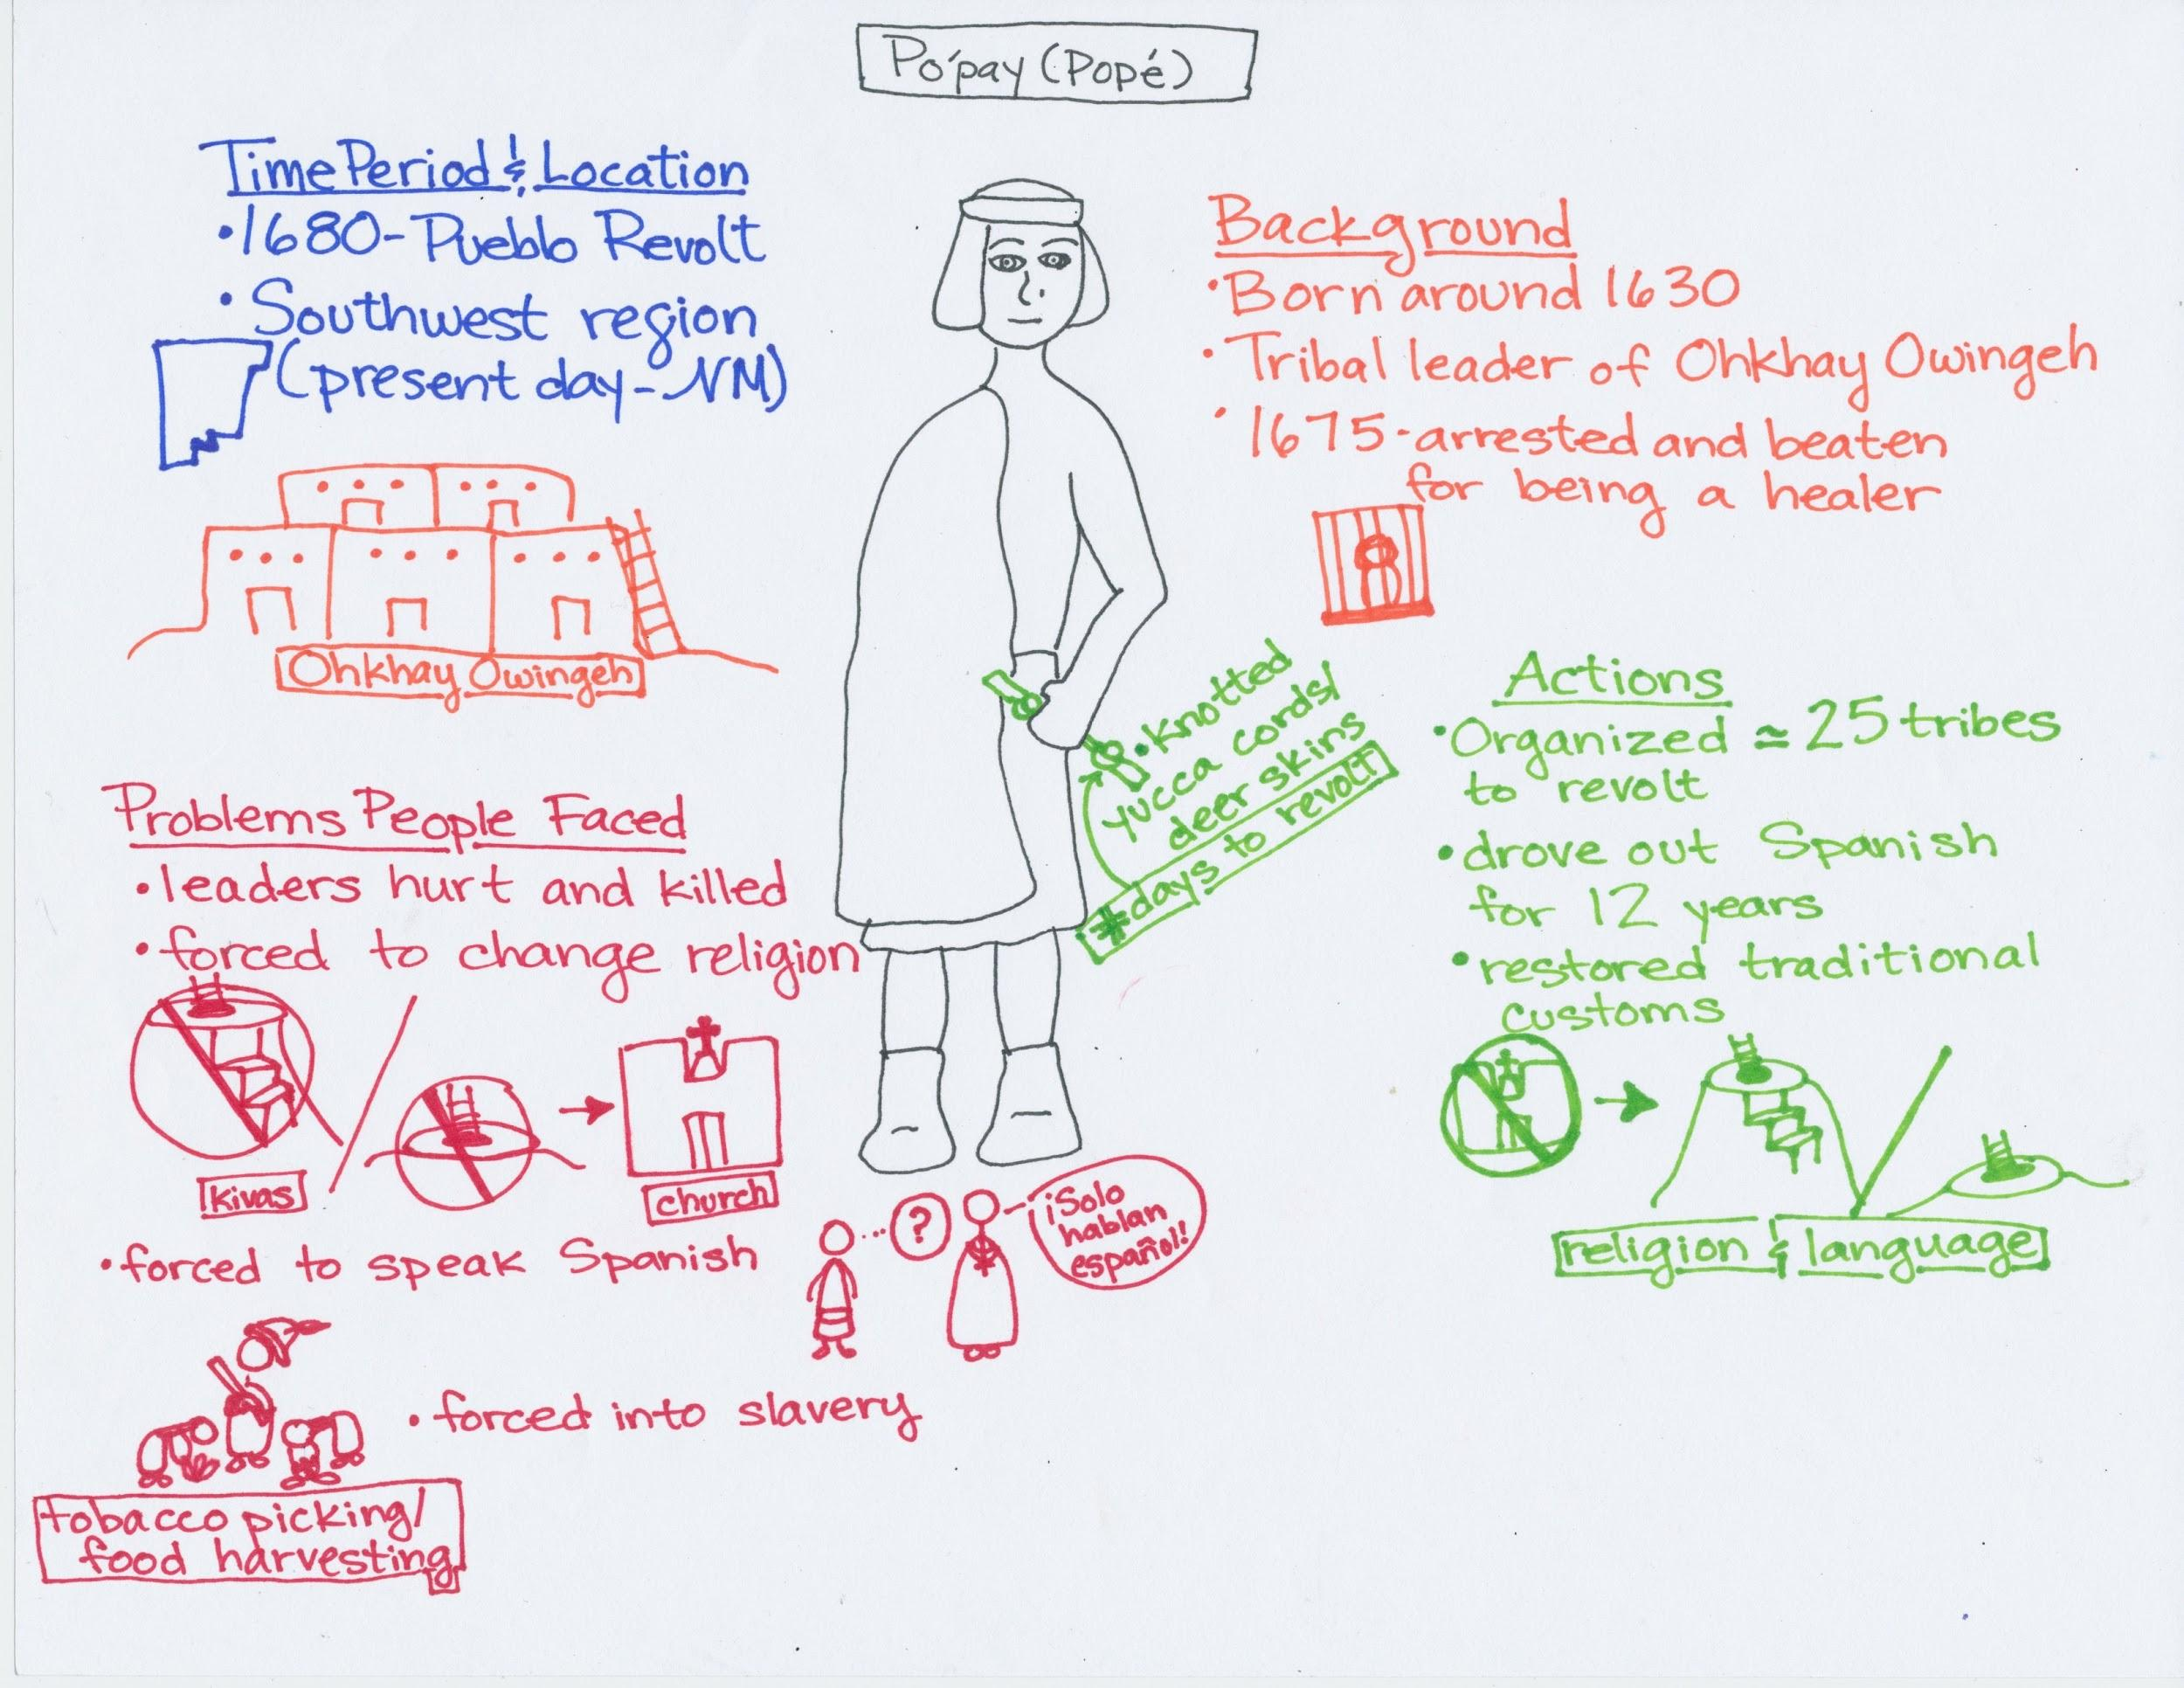 Po'pay (Popé)
Time Period & Location
•1680-Pueblo Revolt
•Southwest region
(present day-NM)
Ohkhay Owingeh
Background
•Born around 1630
•Tribal leader of Ohkhay Owingeh
•1675-arrested and beaten
for being a healer
•Knotted
yucca cords/
deer skins
#days to revolt
Actions
•Organized ≈ 25 tribes
to revolt
•drove out Spanish
for 12 years
•restored traditional
customs
religion & language
Problems People Faced
•leaders hurt and killed
•forced to change religion
kivas
church
•forced to speak Spanish
?
¡Solo
hablan
español!
•forced into slavery
tobacco picking/
food harvesting